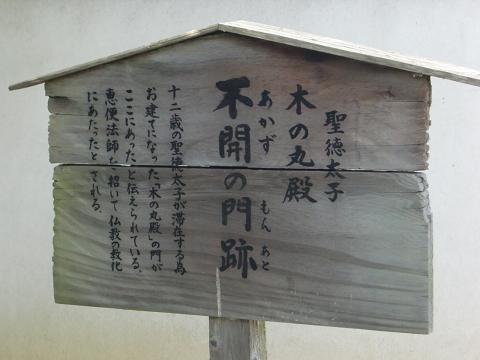 聖徳太子
木の丸殿
不開の門跡
あかず もん あと
十二歳の聖徳太子が滞在する為
お建てになった「木の丸殿」の門が
ここにあったと伝えられている。
恵便法師を招いて仏教の教化
にあたったとされる。